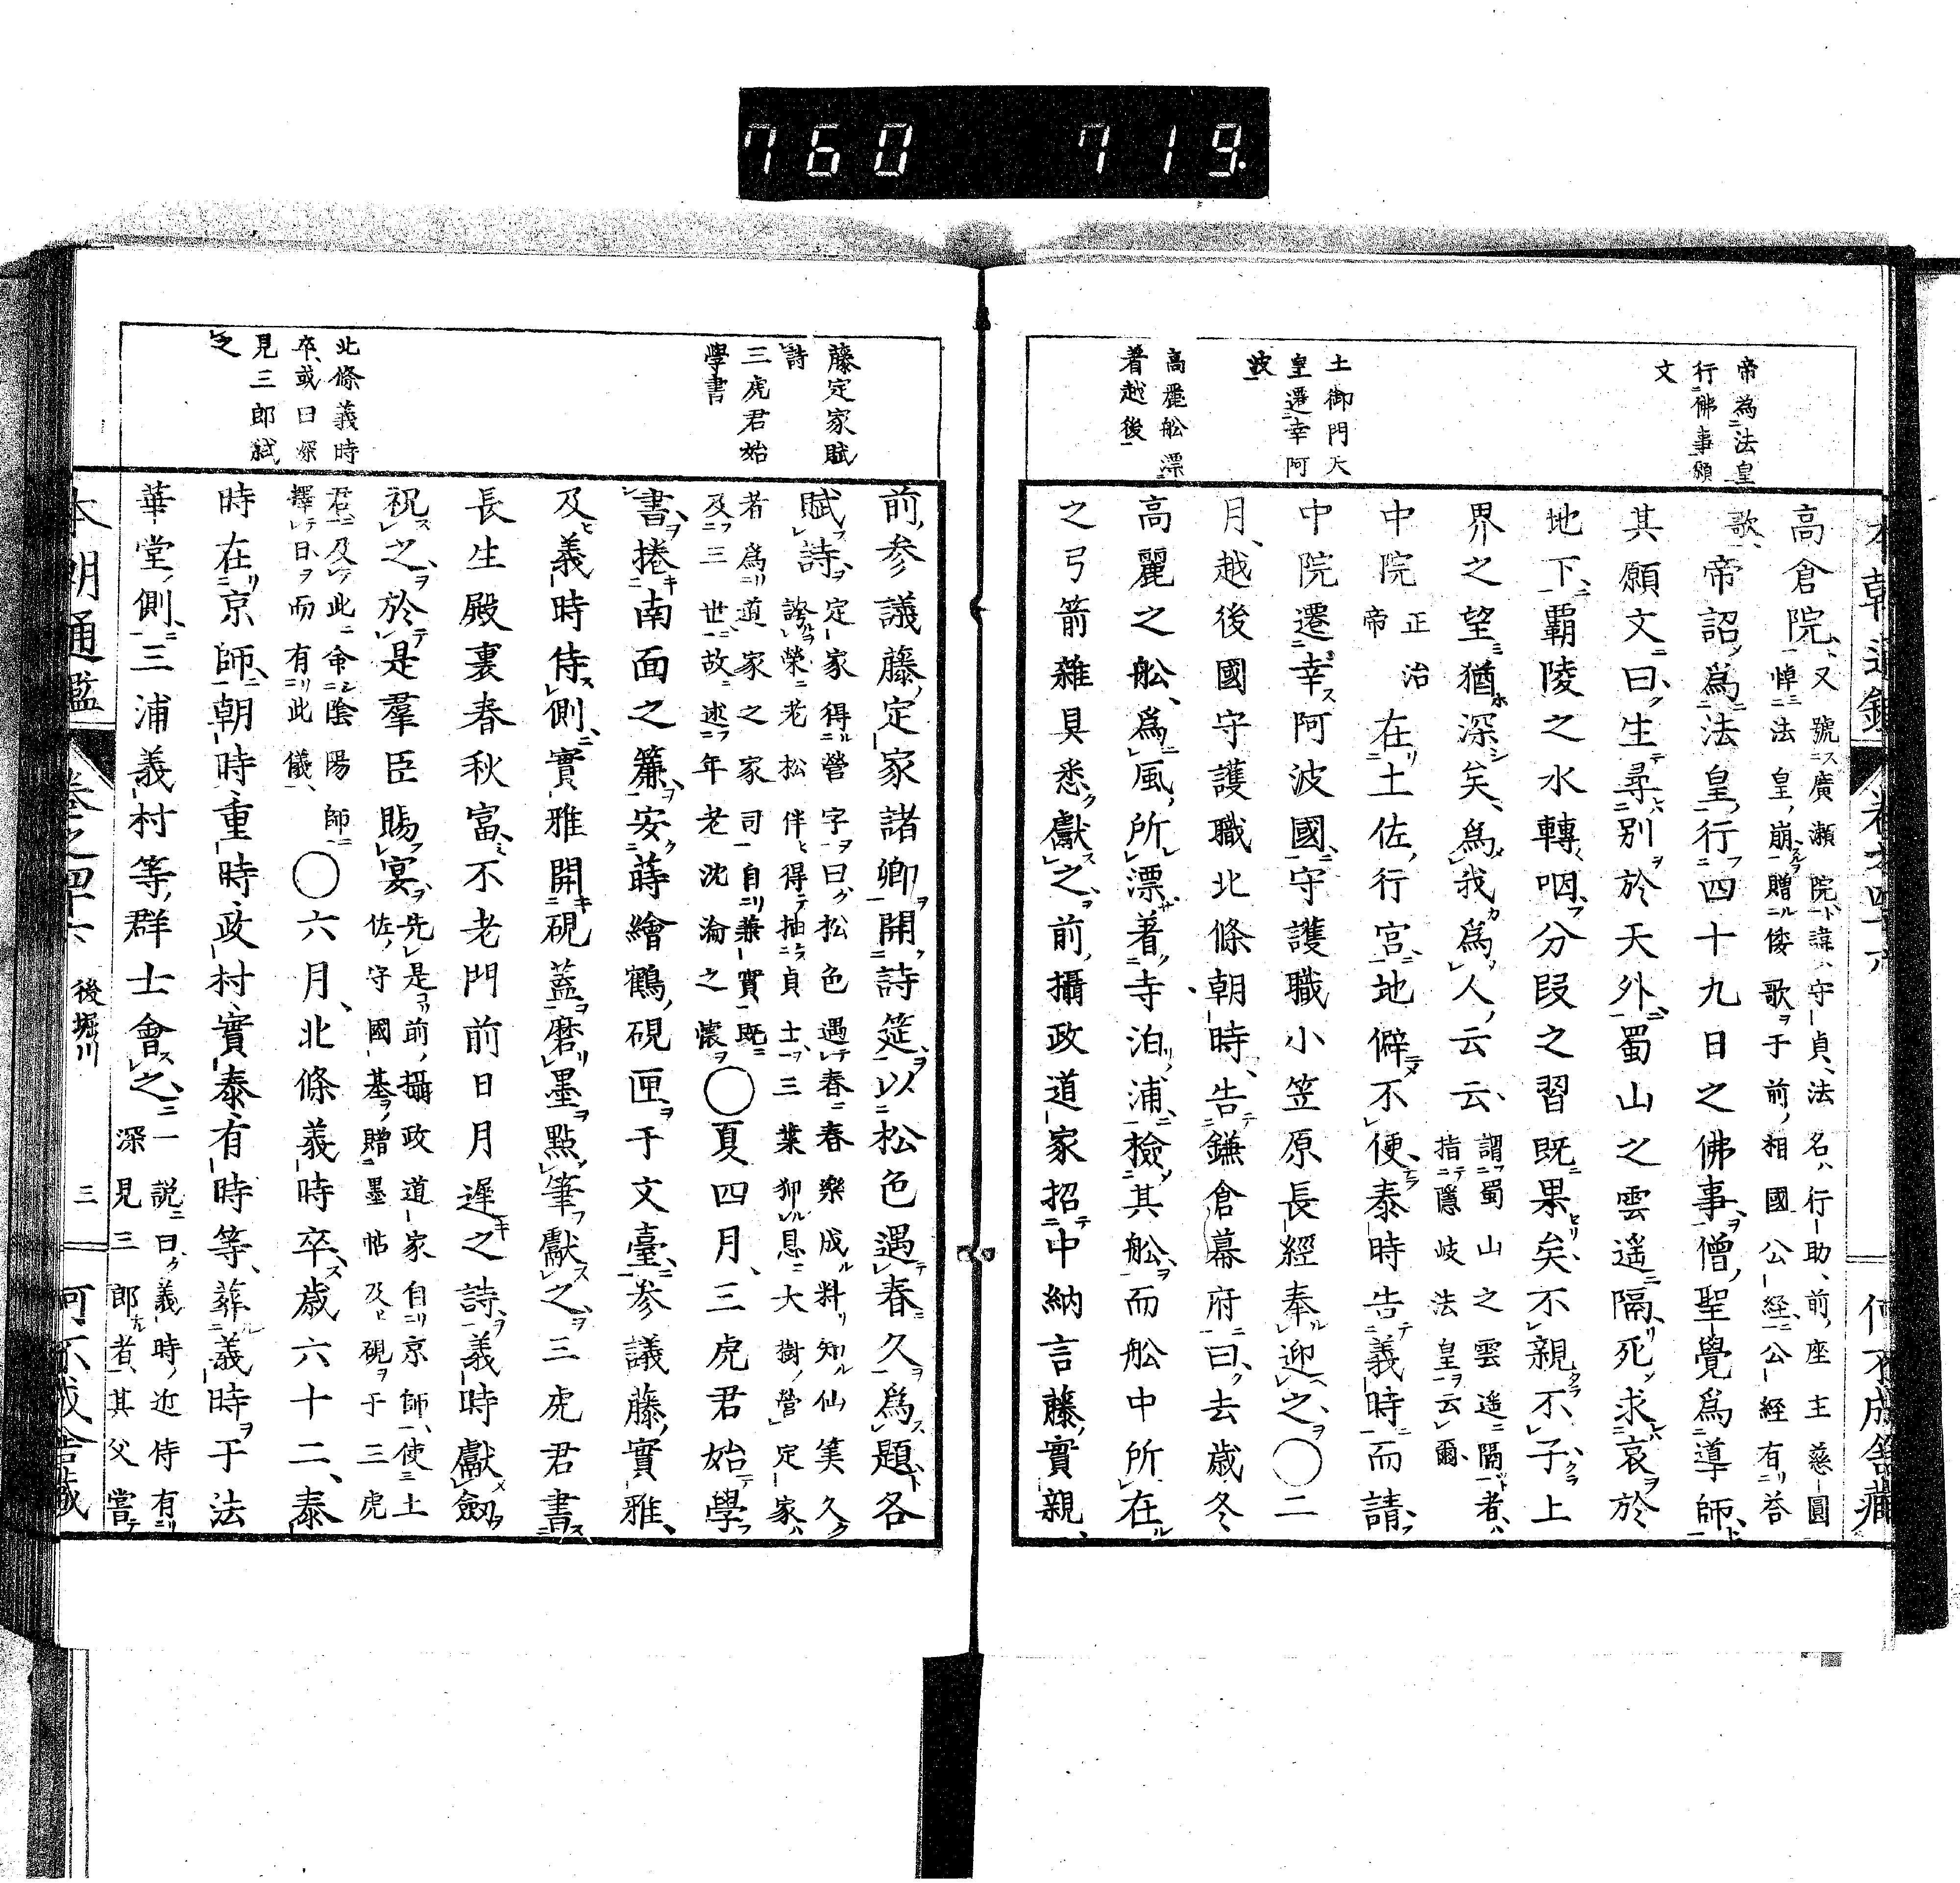 760 719
帝為法皇
行佛事願
文
土御門天
皇遷幸阿
波
高麗舩漂
着越後
高倉院又號廣瀬院諱守貞法名行助前座主慈圓
悼法皇崩贈倭歌于前相國公經公經有答
歌帝詔爲法皇行四十九日之佛事僧聖覺爲導師
其願文曰生尋別於天外蜀山之雲遥隔死求哀於
地下覇陵之水轉咽分段之習既果矣不親不子上
界之望猶深矣爲我爲人云云謂蜀山之雲遥隔者
指隱岐法皇云爾
中院正治
帝在土佐行宮地僻不便泰時告義時而請
中院遷幸阿波國守護職小笠原長經奉迎之〇二
月越後國守護職北條朝時告鎌倉幕府曰去歳冬
高麗之舩爲風所漂著寺泊浦檢其舩而舩中所在
之弓箭雜具悉獻之前攝政道家招中納言藤實親
藤定家賦
詩
三虎君始
學書
北條義時
卒或曰深
見三郎弑
之
前参議藤定家諸卿開詩筵以松色遇春久爲題各
賦詩定家得營字曰松色遇春春樂成料知仙筭久
誇榮老松伴得抽貞士三葉仰恩大樹營定家
者爲道家之家司自兼實既
及三世故述年老沈淪之懷〇夏四月三虎君始學
書捲南面之簾安蒔繪鶴硯匣于文臺参議藤實雅
及義時侍側實雅開硯蓋磨墨點筆獻之三虎君書
長生殿裏春秋富不老門前日月遲之詩義時獻劔
祝之於是羣臣賜宴先是前攝政道家自京師使土
佐守國基贈墨帖及硯于三虎
君及此命陰陽師
擇日而有此儀〇六月北條義時卒歳六十二泰
時在京師朝時重時政村實泰有時等葬義時于法
華堂側三浦義村等群士會之一説曰義時近侍有
深見三郎者其父嘗
本朝通鑑 卷之四十六 後堀川 三